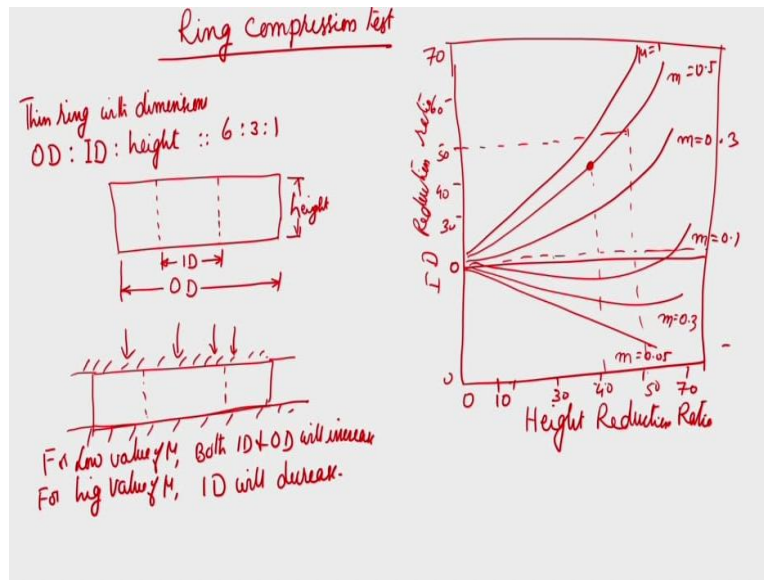 Ring Compression test
Thin ring with dimensions
OD: ID: height :: 6:3:1
height
ID
OD
For Low value of μ, Both ID & OD will increase
For hig value of μ, ID will decrease.
ID Reduction ratio
70
60
50
40
30
0
0
μ=1
m=0.5
m=0.3
m=0.1
m=0.3
m=0.05
0 10 30 40 50 70
Height Reduction Ratio